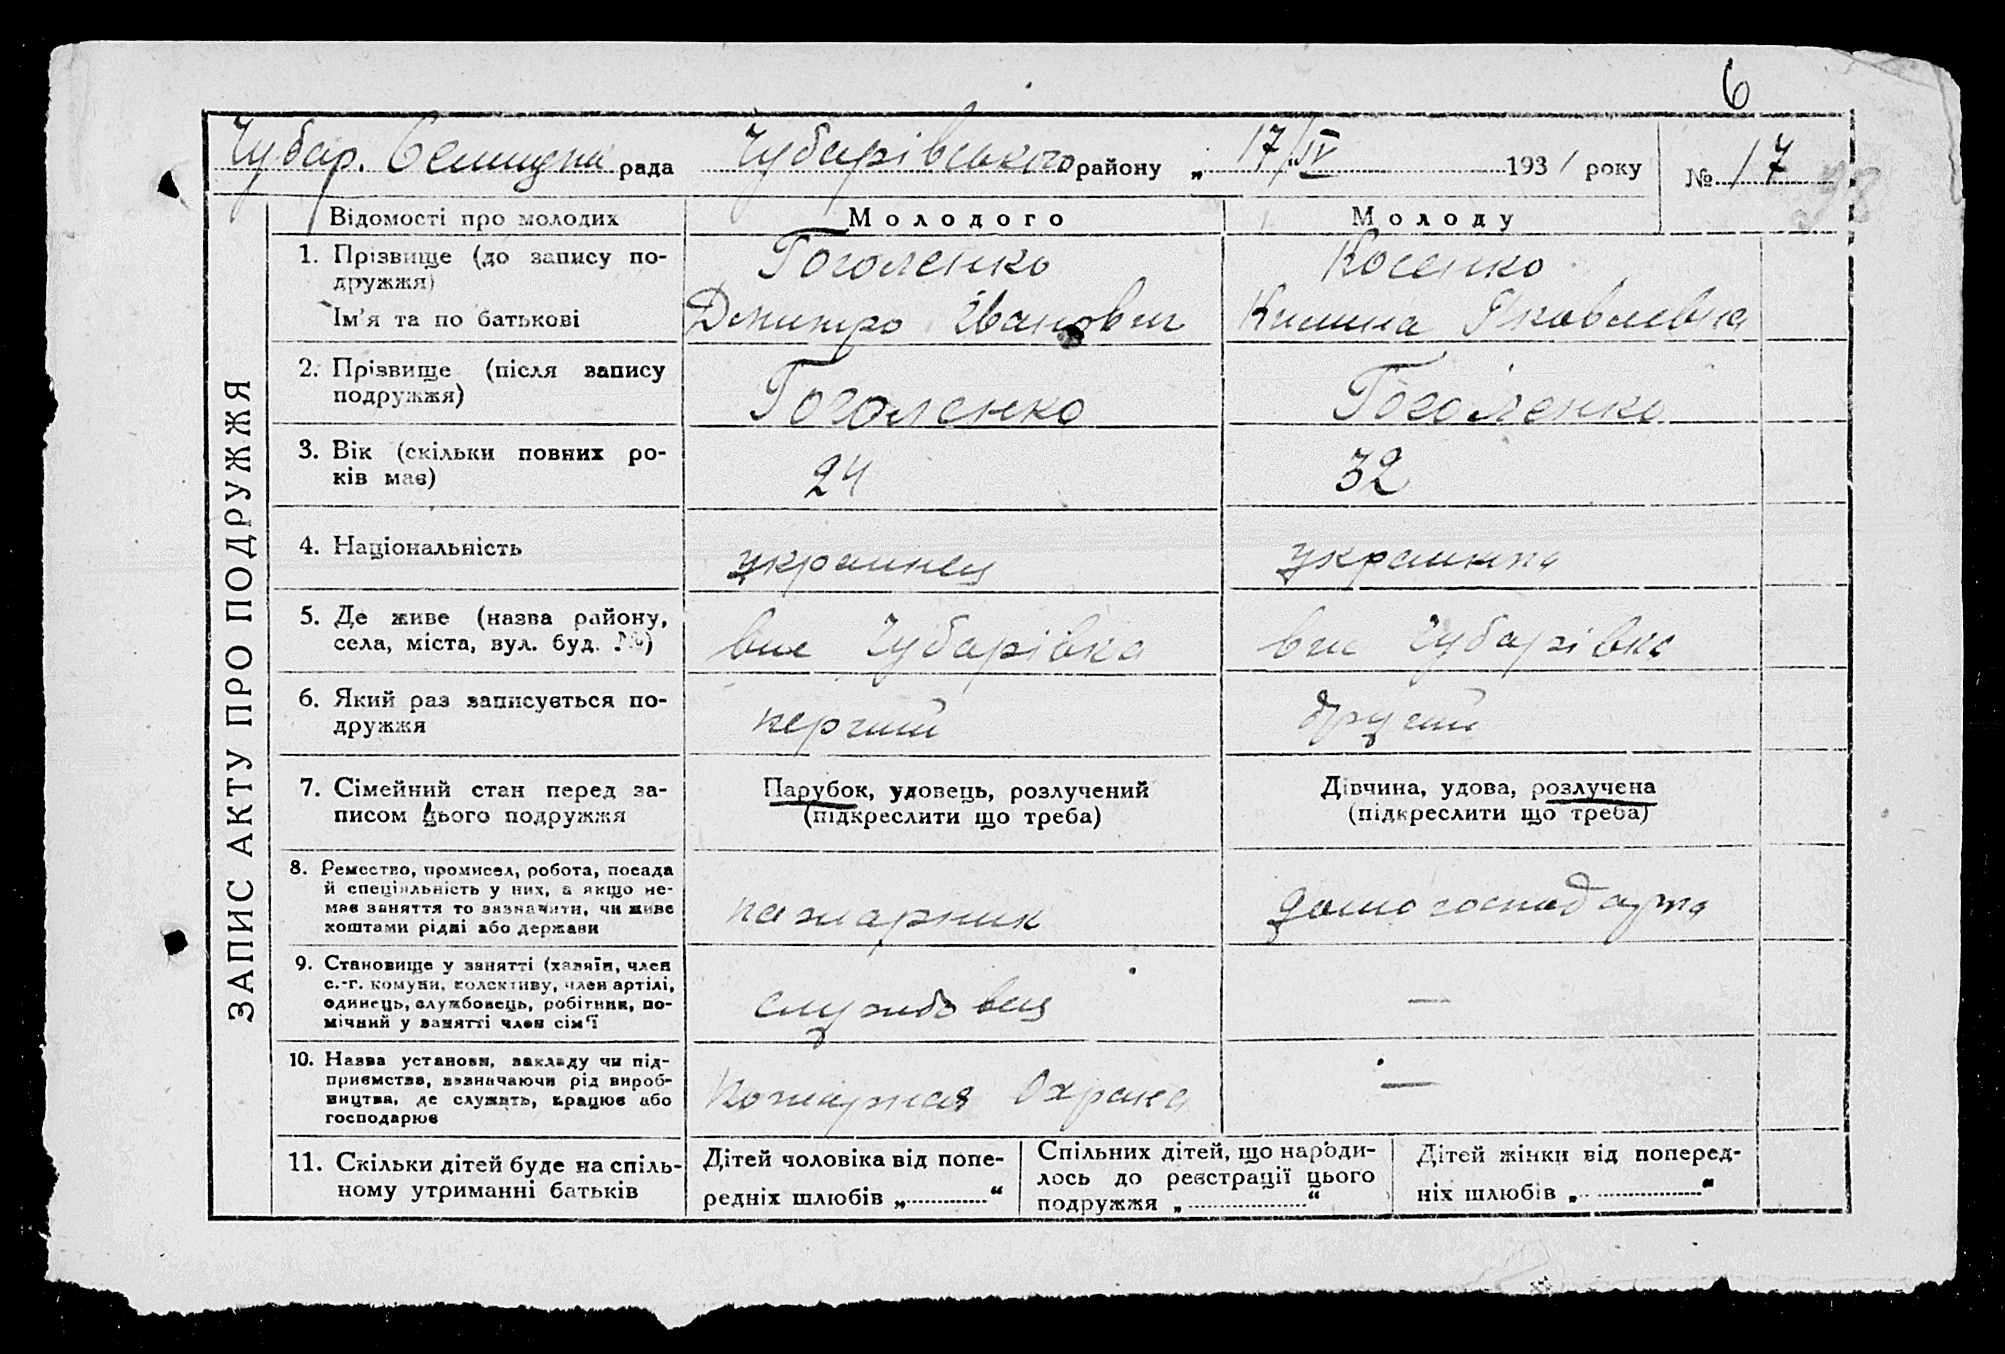 6
Чубар. Селищна рада Чубарівського району „ 17/IV 1931 року № 17
98
ЗАПИС АКТУ ПРО ПОДРУЖЖЯ
Відомості про молодих Молодого Молоду
1. Прізвище (до запису по- Гоголенко Косенко
дружжя)
Ім'я та по батькові Дмитро Іванович Килина Яковлевна
2. Прізвище (після запису Гоголенко Гоголенко
подружжя)
3. Вік (скільки повних ро- 24 32
ків має)
4. Національність украинец украинка
5. Де живе (назва району, Чубарівка Чубарівка
села, міста, вул. буд. №)
6. Який раз записується по- перший другий
дружжя
7. Сімейний стан перед за- Парубок, удовець, розлучений Дівчина, удова, розлучена
писом цього подружжя (підкреслити що треба) (підкреслити що треба)
8. Ремество, промисел, робота, посада
й спеціяльність у них, а якщо не-
має заняття то зазначити, чи живе пожарник домогосподарка
коштами рідні або держави
9. Становище у занятті (хазяїн, член
с.-г. комуни, колективу, член артілі,
одинець, службовець, робітник, по- службовец —
мічний у занятті член сім'ї
10. Назва установи, закладу чи під-
приємства, зазначаючи рід вироб- Пожарная Охрана —
ництва, де служить, працює або
господарює
11. Скільки дітей буде на спіль- Дітей чоловіка від попе- Спільних дітей, що народи- Дітей жінки від поперед-
ному утриманні батьків редніх шлюбів „ “ лось до реєстрації цього ніх шлюбів „ “
подружжя „ “